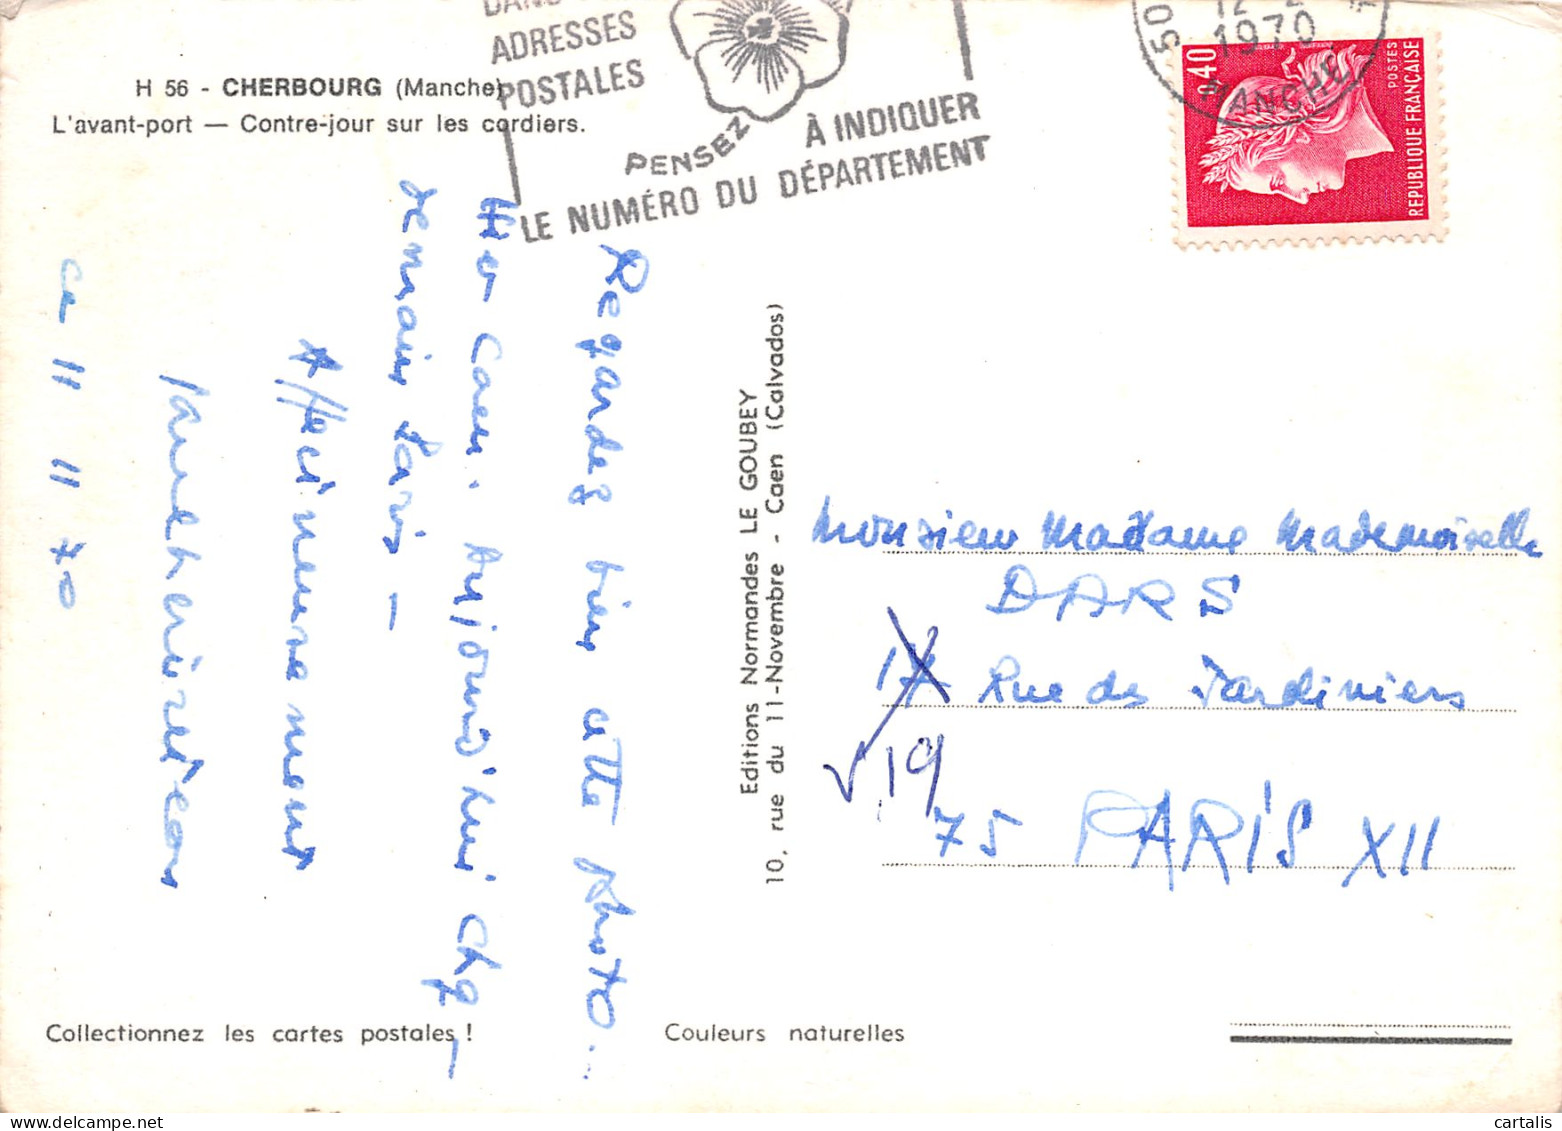 H 56 - CHERBOURG (Manche)
L'avant-port — Contre-jour sur les cordiers.
ADRESSES
POSTALES
PENSEZ
À INDIQUER
LE NUMÉRO DU DÉPARTEMENT
50
12
1970
MANCHE
0,40
POSTES
REPUBLIQUE FRANÇAISE
Regardez bien cette photo...
Hier Caen. Aujourd'hui Chg –
demain Paris –
Affectueusement
ce 11 11 70
Editions Normandes LE GOUBEY
10, rue du 11-Novembre - Caen (Calvados)
Monsieur Madame Mademoiselle
DARS
17 Rue des Jardiniers
19
75 PARIS XII
Collectionnez les cartes postales !
Couleurs naturelles
cartalis